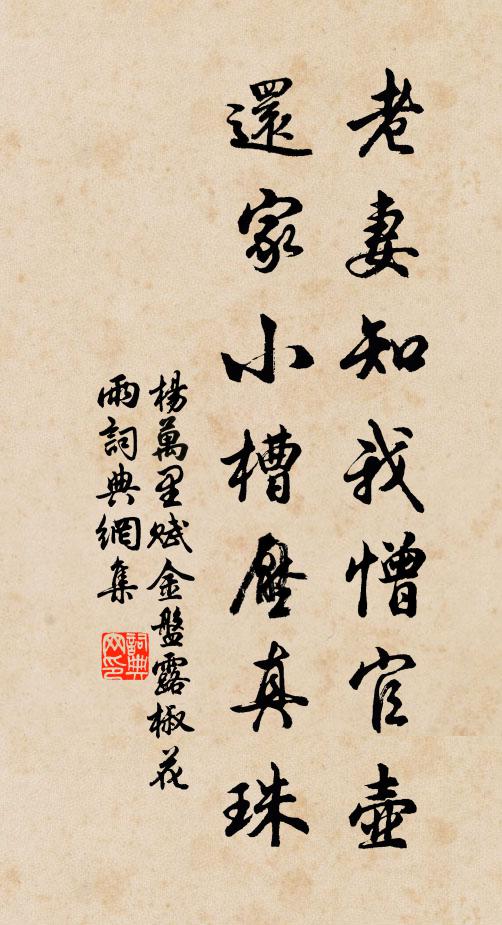 老妻知我憎官壺
還家小槽壓真珠
楊萬里賦金盤露椒花
雨詞典網集
詞典網印